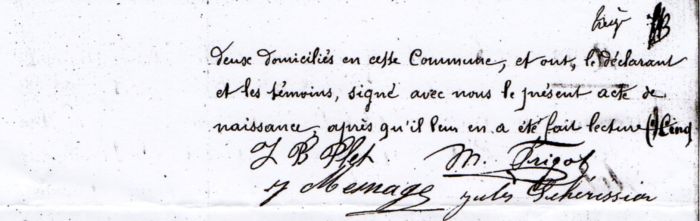 deux domiciliés en cette Commune, et ont, le déclarant
et les témoins, signé avec nous le présent acte de
naissance, après qu'il leur en a été fait lecture (1) Cinq
J B Plet M. Trigot
Menage Jules